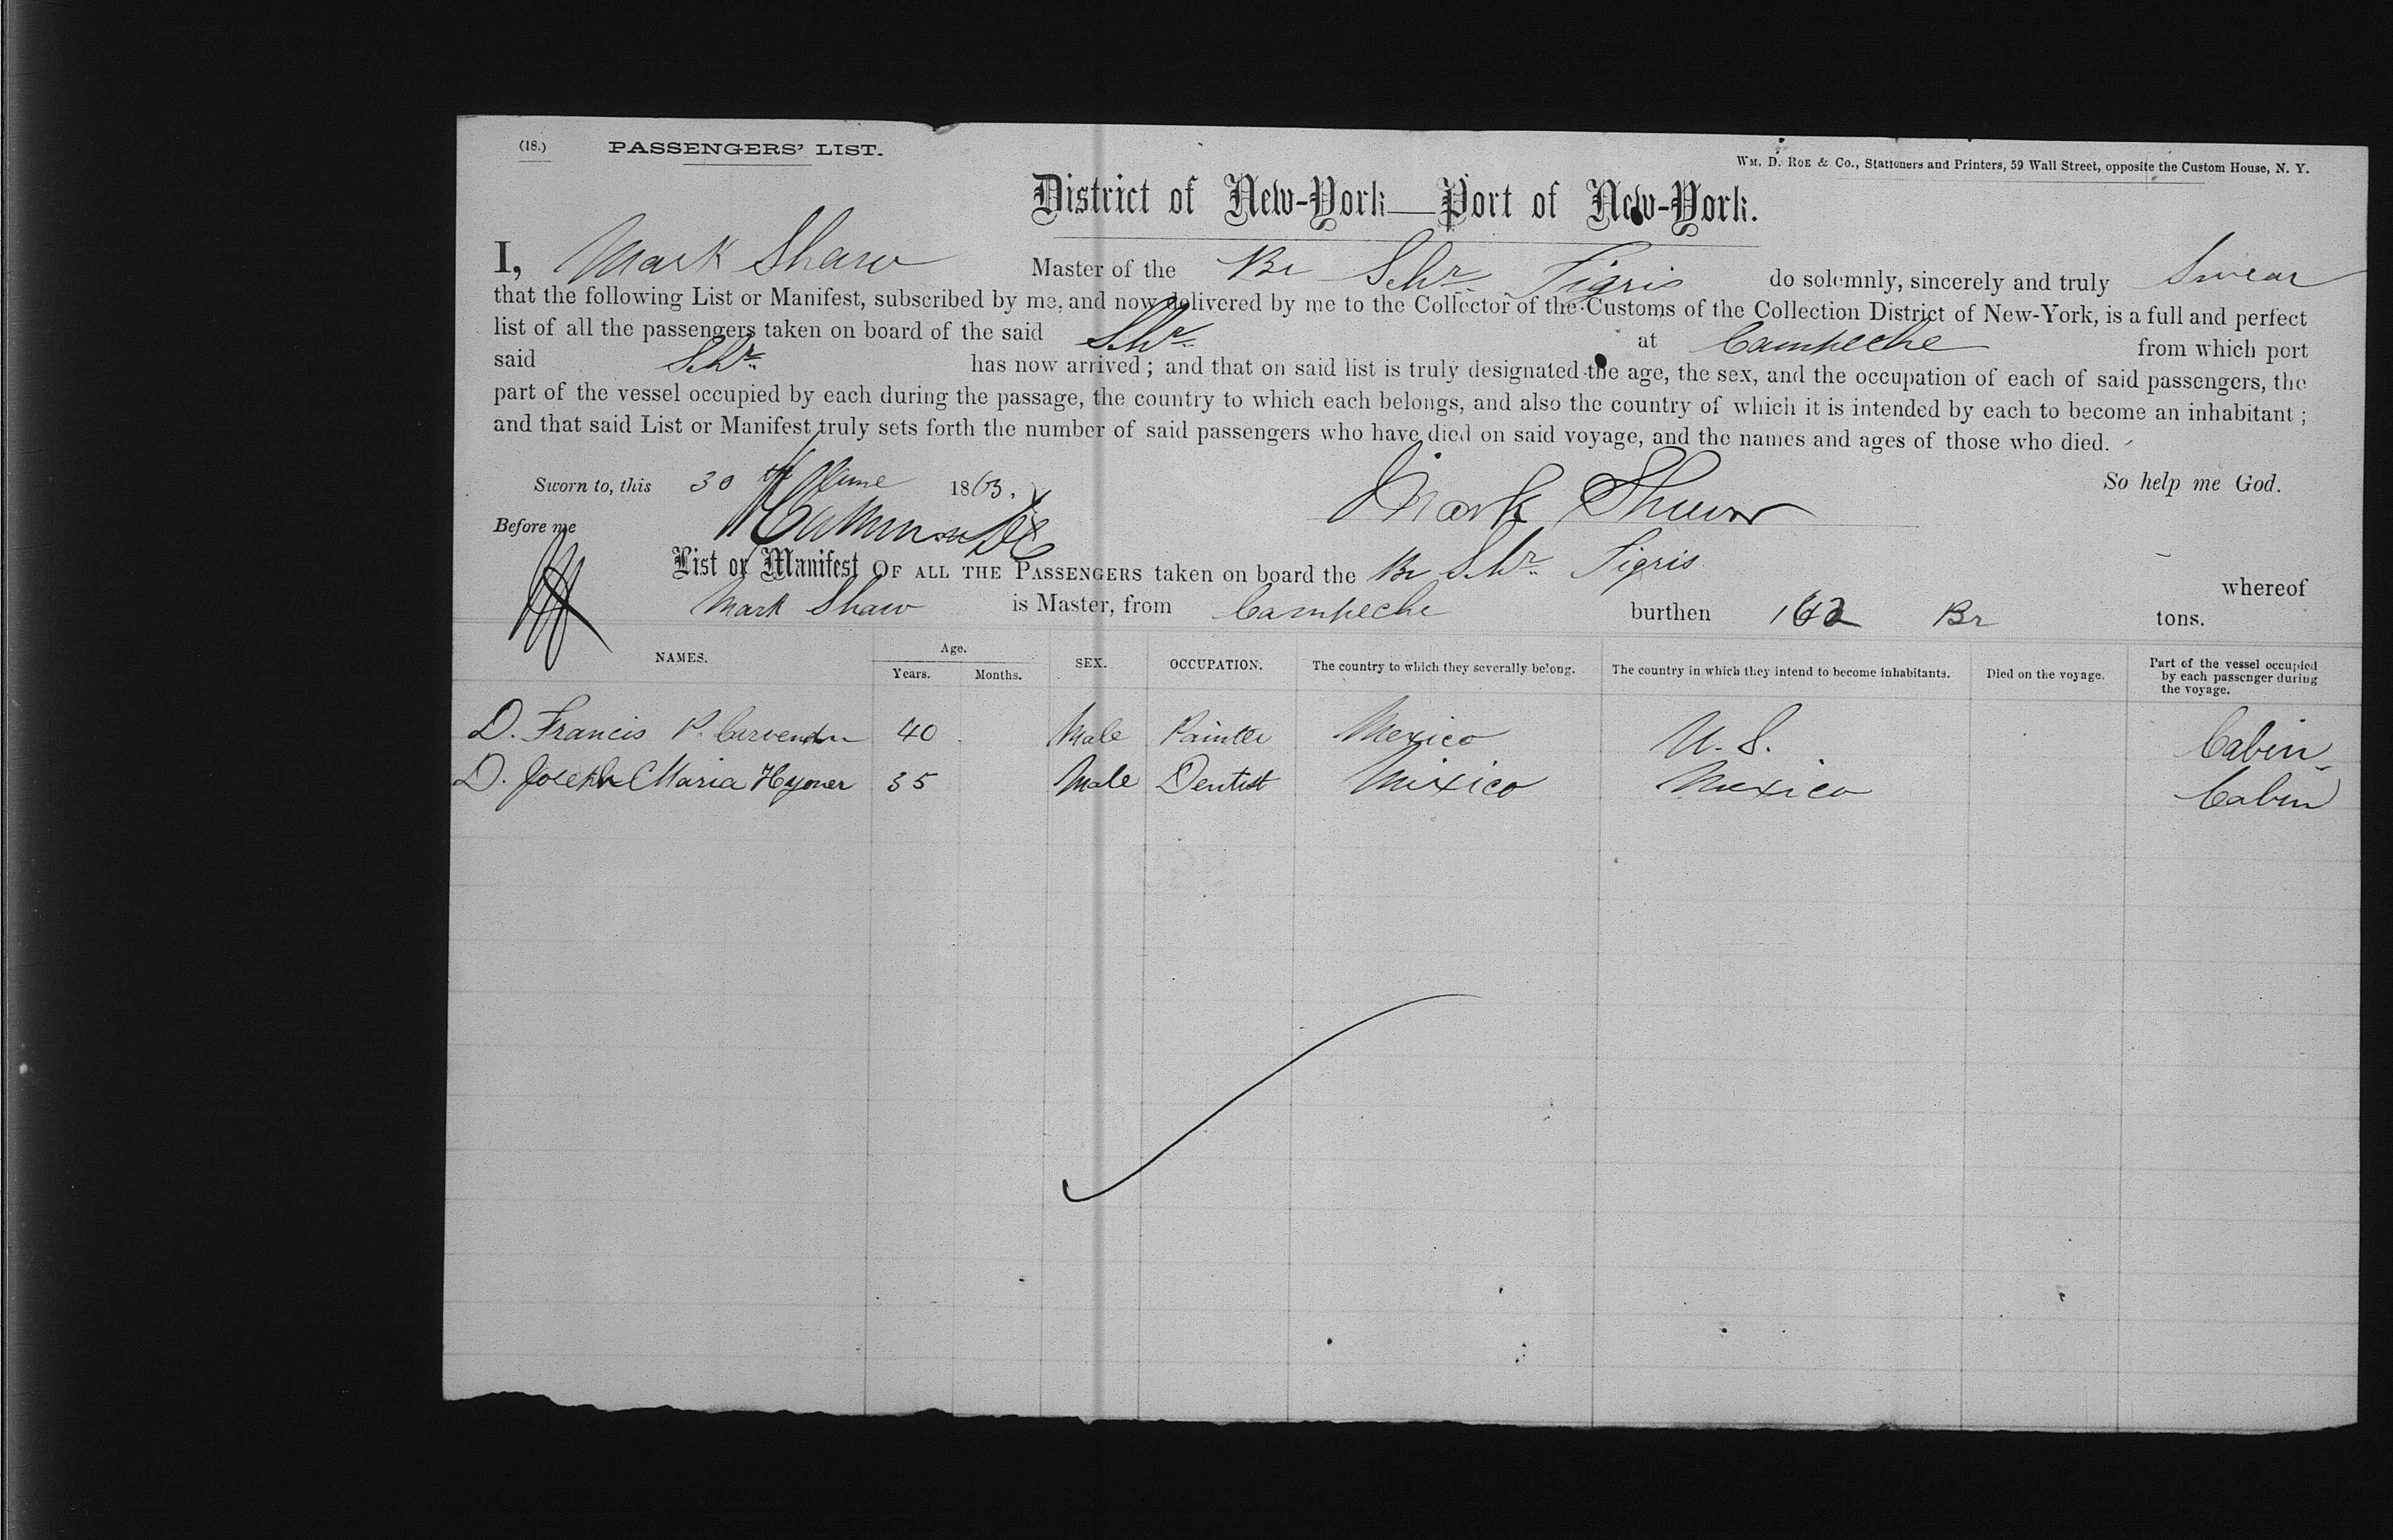 (18.) PASSENGERS' LIST.
Wm. D. Roe & Co., Stationers and Printers, 59 Wall Street, opposite the Custom House, N. Y.
District of New-York—Port of New-York.
I, Mark Shaw Master of the Br Schr. Tigris do solemnly, sincerely and truly Swear
that the following List or Manifest, subscribed by me, and now delivered by me to the Collector of the Customs of the Collection District of New-York, is a full and perfect
list of all the passengers taken on board of the said Schr. at Campeche from which port
said Schr. has now arrived; and that on said list is truly designated the age, the sex, and the occupation of each of said passengers, the
part of the vessel occupied by each during the passage, the country to which each belongs, and also the country of which it is intended by each to become an inhabitant;
and that said List or Manifest truly sets forth the number of said passengers who have died on said voyage, and the names and ages of those who died.
Sworn to, this 30 th June 1863. Mark Shaw So help me God.
Before me
List or Manifest OF ALL THE PASSENGERS taken on board the Br Schr. Tigris whereof
Mark Shaw is Master, from Campeche burthen 162 Br tons.
NAMES. Age. Years. Months. SEX. OCCUPATION. The country to which they severally belong. The country in which they intend to become inhabitants. Died on the voyage. Part of the vessel occupied by each passenger during the voyage.
D. Francis P. 40 Male Painter Mexico U. S. Cabin
D. Joseph Maria 35 Male Dentist Mixico Mexico Cabin